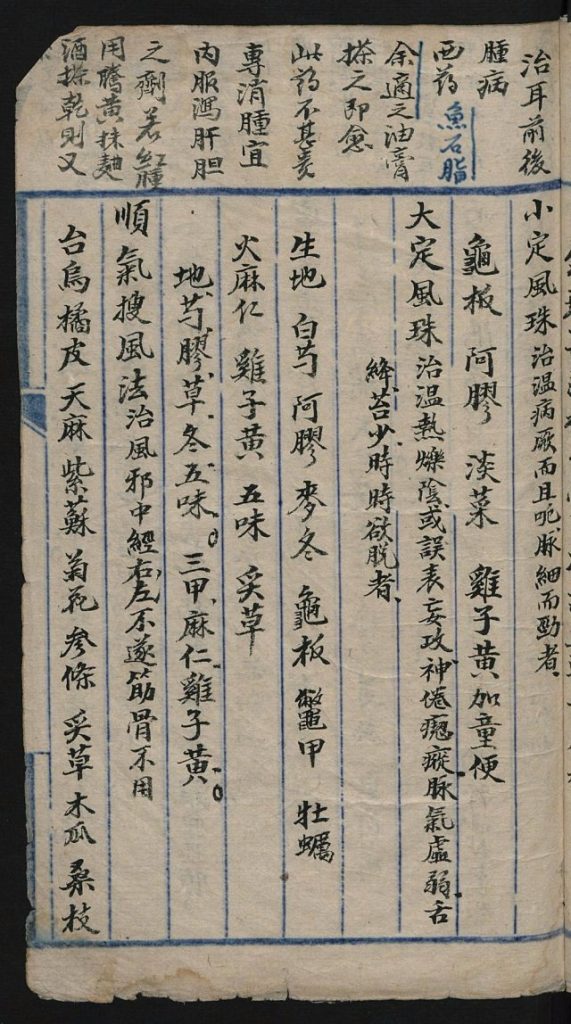 治耳前後
腫病
西药魚石脂
余適之油膏
搽之即愈
此药不甚責
專消腫宜
內服瀉肝胆
之劑若紅腫
用騰黄抹麯
酒搽乾則又
小定風珠治温病厥而且呃脉細而勁者
龜板 阿膠 淡菜 雞子黄加童便
大定風珠治温熱爍陰或誤表妄攻神倦瘛瘲脉氣虛弱舌
絳苔少時時欲脱者
生地 白芍 阿膠 麥冬 龜板 鱉甲 牡蠣
火麻仁 雞子黄 五味 炙草
地芍膠草冬五味。三甲麻仁雞子黄。
順氣搜風法治風邪中經右左不遂筋骨不用
台烏 橘皮 天麻 紫蘇 菊花 參條 炙草 木瓜 桑枝